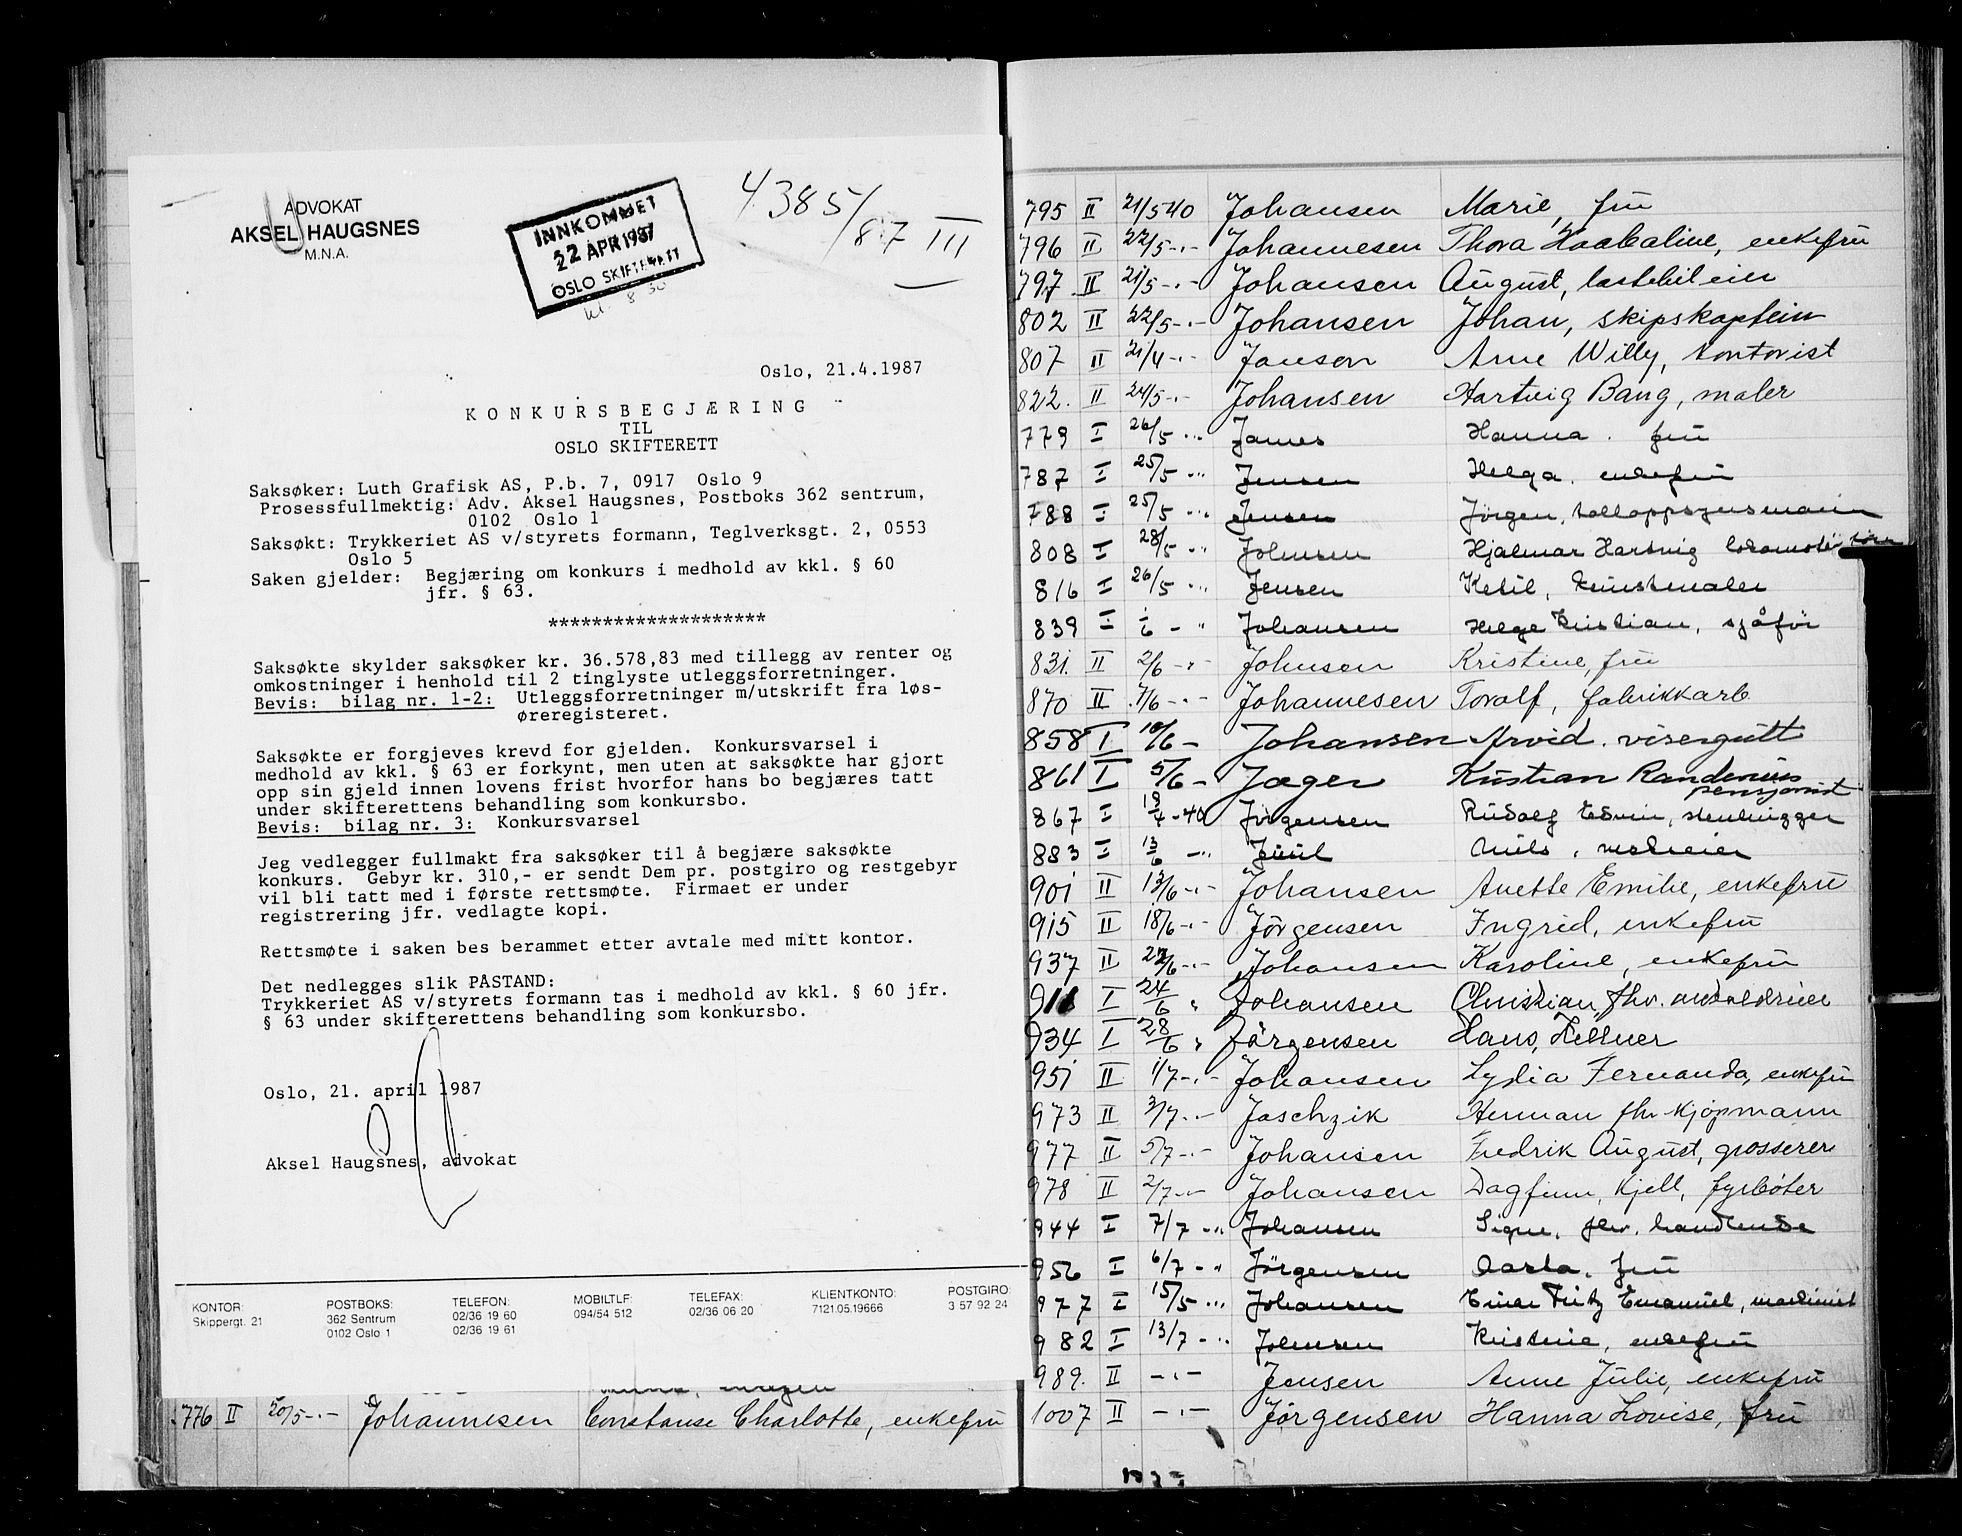 ADVOKAT
AKSEL HAUGSNES
M.N.A.
INNKOMMET
22 APR 1987
OSLO SKIFTERETT
kl. 8 30
4385/
/87 III
Oslo, 21.4.1987
KONKURSBEGJÆRING
TIL
OSLO SKIFTERETT
Saksøker: Luth Grafisk AS, P.b. 7, 0917 Oslo 9
Prosessfullmektig: Adv. Aksel Haugsnes, Postboks 362 sentrum,
0102 Oslo 1
Saksøkt: Trykkeriet AS v/styrets formann, Teglverksgt. 2, 0553
Oslo 5
Saken gjelder: Begjæring om konkurs i medhold av kkl. § 60
jfr. § 63.
********************
Saksøkte skylder saksøker kr. 36.578,83 med tillegg av renter og
omkostninger i henhold til 2 tinglyste utleggsforretninger.
Bevis: bilag nr. 1-2: Utleggsforretninger m/utskrift fra løs-
øreregisteret.
Saksøkte er forgjeves krevd for gjelden. Konkursvarsel i
medhold av kkl. § 63 er forkynt, men uten at saksøkte har gjort
opp sin gjeld innen lovens frist hvorfor hans bo begjæres tatt
under skifterettens behandling som konkursbo.
Bevis: bilag nr. 3: Konkursvarsel
Jeg vedlegger fullmakt fra saksøker til å begjære saksøkte
konkurs. Gebyr kr. 310,- er sendt Dem pr. postgiro og restgebyr
vil bli tatt med i første rettsmøte. Firmaet er under
registrering jfr. vedlagte kopi.
Rettsmøte i saken bes berammet etter avtale med mitt kontor.
Det nedlegges slik PÅSTAND:
Trykkeriet AS v/styrets formann tas i medhold av kkl. § 60 jfr.
§ 63 under skifterettens behandling som konkursbo.
Oslo, 21. april 1987
Aksel Haugsnes, advokat
KONTOR:
Skippergt. 21
POSTBOKS:
362 Sentrum
0102 Oslo 1
TELEFON:
02/36 19 60
02/36 19 61
MOBILTLF:
094/54 512
TELEFAX:
02/36 06 20
KLIENTKONTO:
7121.05.19666
POSTGIRO:
3 57 92 24
776 II 20/5 -"- Johannesen Constanse Charlotte, enkefru
795 II 21/5 40 Johansen Marie, fru
796 II 22/5 -"- Johannesen Thora Haabaline, enkefru
797 II 21/5 -"- Johansen August, lastebileier
802 II 22/5 -"- Johansen Johan, skipskaptein
807 II 21/4 -"- Janson Arne Willy, kontorist
822. II 24/5 -"- Johansen Hartvig Bang, maler
779 I 26/5 -"- James Hanna. fru
787 I 25/5 -"- Jensen Helga, enkefru
788 I 25/5 -"- Jensen Jörgen, tolloppsynsmann
808 I 28/5 -"- Johnsen Hjalmar Hartvig
816 I 26/5 -"- Jensen Ketil, kunstmaler
839 I 1/6 - " Johansen Helge Kristian, sjåför
831. II 2/6 -"- Johnsen Kristine, fru
870 II 7/6 -"- Johannesen Torolf, fabrikkarb
858 I 10/6 - Johansen Arvid. visergutt
861 I 5/6 - Jæger Kristian Randenius
pensjonist
867 I - 40 Jörgensen Rudolf Edvin, stenhugger
883 I 13/6 -"- Juul Anits,
901 II 13/6 -"- Johansen Anette Emilie, enkefru
915 II 18/6 -"- Jörgensen Ingrid, enkefru
937 II 22/6 -"- Johansen Karoline, enkefru
I 24/6 " Johansen Christian, fhv.
934 I 28/6 " Jörgensen Hans, Kellner
951 II 1/7 -"- Johansen Lydia Fernanda, enkefru
973 II 3/7 -"- Jaschzik Herman fhv. kjöpmann
977 II 5/7 -"- Johansen Fredrik August, grosserer
978 II 2/7 -"- Johansen Dagfinn, Kjell, fyrböter
944 I 7/7 -"- Johansen Signe, fhv. handlende
956 I 6/7 -"- Jörgensen Aasta, fru
977 I 15/5 -"- Johansen Einar Fritz Emanuel, maskinist
982 I 13/7 -"- Johnsen Kristine, enkefru
989. II -"- Jensen Anne Julie, enkefru
1007 II -"- Jörgensen Hanna Lovise, fru